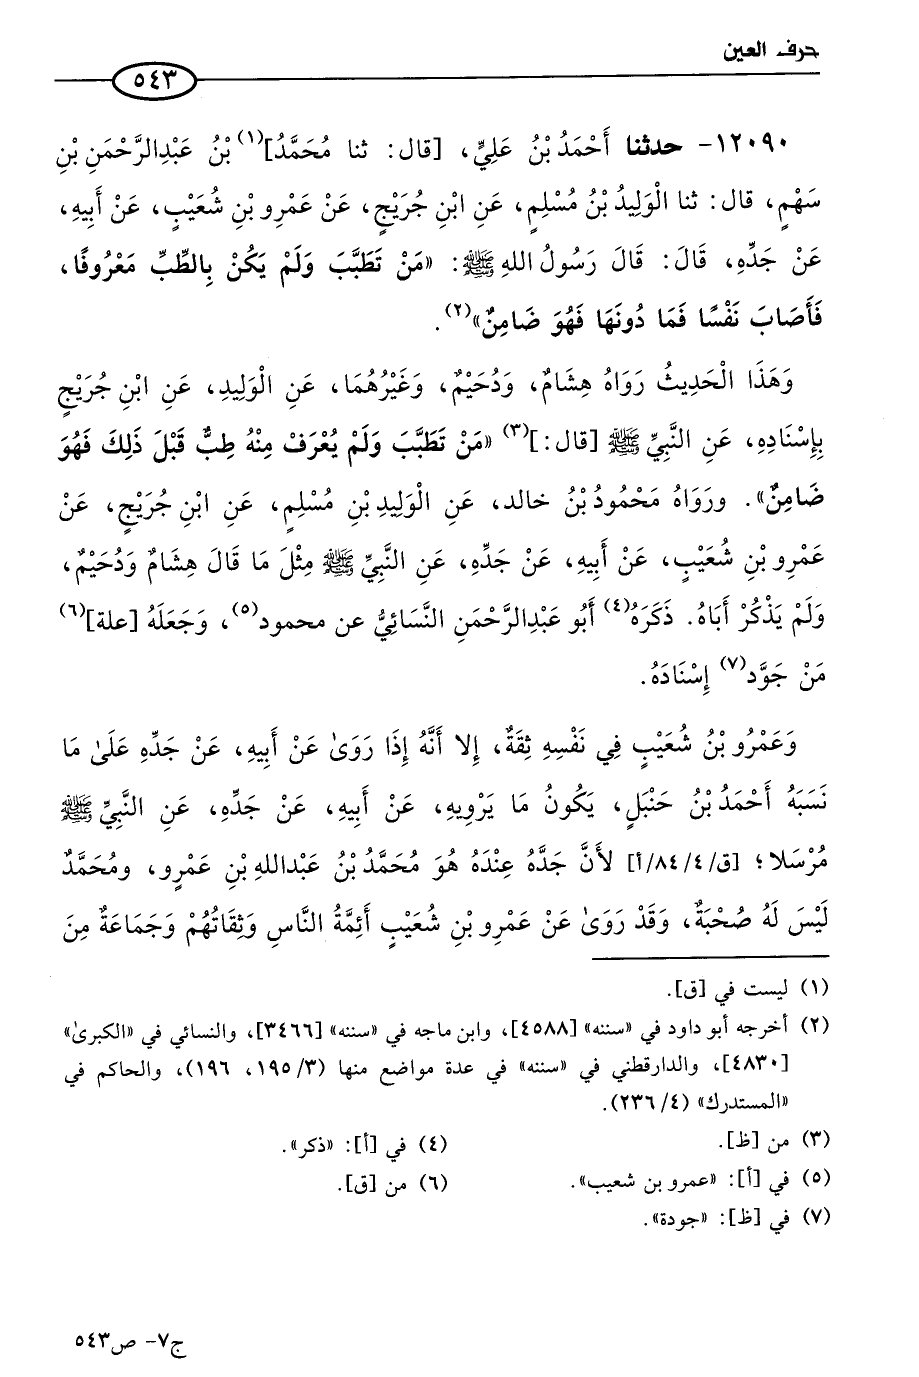 حرف العين
٥٤٣
١٢٠٩٠- حدثنا أَحْمَدُ بْنُ عَلِيٍّ، [قال: ثنا مُحَمَّدُ]⁽١⁾ بْنُ عَبْدِالرَّحْمَنِ بْنِ
سَهْمٍ، قال: ثنا الْوَلِيدُ بْنُ مُسْلِمٍ، عَنِ ابْنِ جُرَيْجٍ، عَنْ عَمْرِو بْنِ شُعَيْبٍ، عَنْ أَبِيهِ،
عَنْ جَدِّهِ، قَالَ: قَالَ رَسُولُ اللهِ ﷺ: «مَنْ تَطَبَّبَ وَلَمْ يَكُنْ بِالطِّبِّ مَعْرُوفًا،
فَأَصَابَ نَفْسًا فَمَا دُونَهَا فَهُوَ ضَامِنٌ»⁽٢⁾.
وَهَذَا الْحَدِيثُ رَوَاهُ هِشَامٌ، وَدُحَيْمٌ، وَغَيْرُهُمَا، عَنِ الْوَلِيدِ، عَنِ ابْنِ جُرَيْجٍ
بِإِسْنَادِهِ، عَنِ النَّبِيِّ ﷺ [قال:]⁽٣⁾ «مَنْ تَطَبَّبَ وَلَمْ يُعْرَفْ مِنْهُ طِبٌّ قَبْلَ ذَلِكَ فَهُوَ
ضَامِنٌ». ورَوَاهُ مَحْمُودُ بْنُ خالد، عَنِ الْوَلِيدِ بْنِ مُسْلِمٍ، عَنِ ابْنِ جُرَيْجٍ، عَنْ
عَمْرِو بْنِ شُعَيْبٍ، عَنْ أَبِيهِ، عَنْ جَدِّهِ، عَنِ النَّبِيِّ ﷺ مِثْلَ مَا قَالَ هِشَامٌ وَدُحَيْمٌ،
وَلَمْ يَذْكُرْ أَبَاهُ. ذَكَرَهُ⁽٤⁾ أَبُو عَبْدِالرَّحْمَنِ النَّسَائِيُّ عن محمود⁽٥⁾، وَجَعَلَهُ [علة]⁽٦⁾
مَنْ جَوَّد⁽٧⁾ إِسْنَادَهُ.
وَعَمْرُو بْنُ شُعَيْبٍ فِي نَفْسِهِ ثِقَةٌ، إِلا أَنَّهُ إِذَا رَوَىٰ عَنْ أَبِيهِ، عَنْ جَدِّهِ عَلَىٰ مَا
نَسَبَهُ أَحْمَدُ بْنُ حَنْبَلٍ، يَكُونُ مَا يَرْوِيهِ، عَنْ أَبِيهِ، عَنْ جَدِّهِ، عَنِ النَّبِيِّ ﷺ
مُرْسَلا؛ [ق/٤/٨٤/أ] لأَنَّ جَدَّهُ عِنْدَهُ هُوَ مُحَمَّدُ بْنُ عَبْداللهِ بْنِ عَمْرٍو، ومُحَمَّدٌ
لَيْسَ لَهُ صُحْبَةٌ، وَقَدْ رَوَىٰ عَنْ عَمْرِو بْنِ شُعَيْبٍ أَئِمَّةُ النَّاسِ وَثِقَاتُهُمْ وَجَمَاعَةٌ مِنَ
(١) ليست في [ق].
(٢) أخرجه أبو داود في «سننه» [٤٥٨٨]، وابن ماجه في «سننه» [٣٤٦٦]، والنسائي في «الكبرىٰ»
[٤٨٣٠]، والدارقطني في «سننه» في عدة مواضع منها (٣/ ١٩٥، ١٩٦)، والحاكم في
«المستدرك» (٤/ ٢٣٦).
(٣) من [ظ]. (٤) في [أ]: «ذكر».
(٥) في [أ]: «عمرو بن شعيب». (٦) من [ق].
(٧) في [ظ]: «جودة».
ج٧- ص٥٤٣